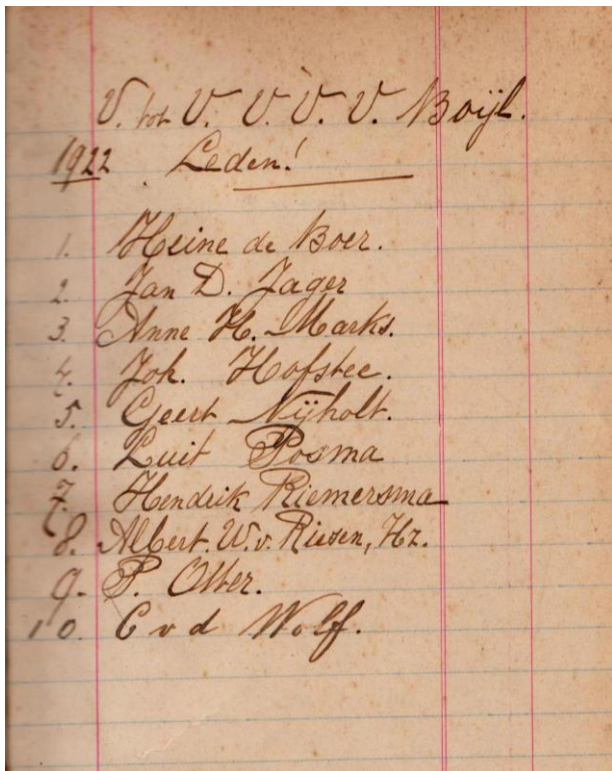 V. tot V. V. V. V. Boijl.
1922 Leden!
1. Heine de Boer.
2. Jan D. Jager
3. Anne H. Marks.
4. Joh. Hofstee.
5. Geert Nijholt.
6. Luit Posma
7. Hendrik Riemersma
8. Albert. W. v. Riesen, Hz.
9. P. Otter.
10. C v d Wolff.